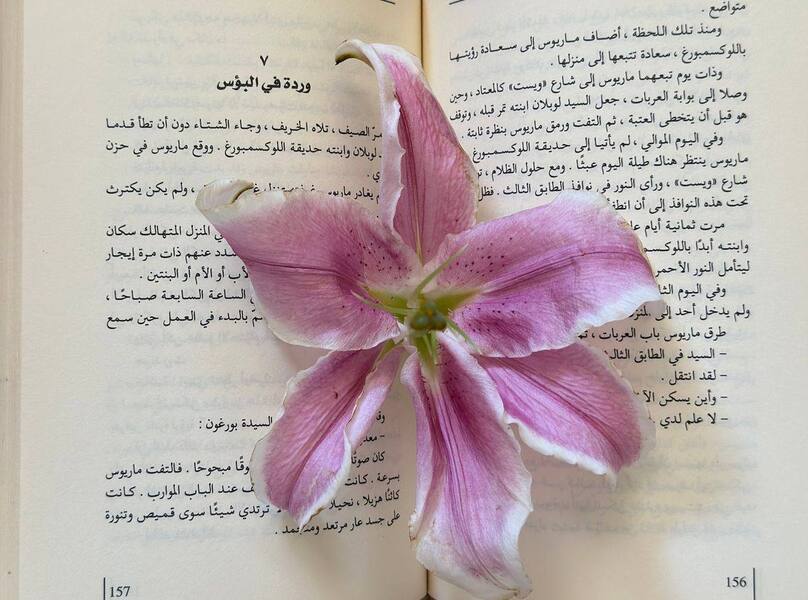 متواضع .
ومنذ تلك اللحظة ، أضاف ماريوس إلى سعادة رؤيتها
باللوكسمبورغ ، سعادة تتبعها إلى منزلها .
وذات يوم تبعهما ماريوس إلى شارع «ويست» كالمعتاد ، وحين
وصلا إلى بوابة العربات ، جعل السيد لوبلان ابنته تمر قبله ، وتوقف
هو قبل أن يتخطى العتبة ، ثم التفت ورمق ماريوس بنظرة ثابتة .
وفي اليوم الموالي ، لم يأتيا إلى حديقة اللوكسمبورغ
ماريوس ينتظر هناك طيلة اليوم عبثًا . ومع حلول الظلام ،
شارع «ويست» ، ورأى النور في نوافذ الطابق الثالث . فظل
تحت هذه النوافذ إلى أن
مرت ثمانية أيام
وابنته أبدًا
ليتأمل النور الأحمر
وفي اليوم
ولم يدخل أحد إلى
طرق ماريوس باب العربات ،
– السيد في الطابق
– لقد انتقل .
– وأين يسكن
– لا علم لدي
156
٧
وردة في البؤس
الصيف ، تلاه الخريف ، وجاء الشتاء دون أن تطأ قدما
لوبلان وابنته حديقة اللوكسمبورغ . ووقع ماريوس في حزن
يغادر ماريوس ، ولم يكن يكترث
المنزل المتهالك سكان
عنهم ذات مرة إيجار
أو الأم أو البنتين .
الساعة السابعة صباحًا ،
بالبدء في العمل حين سمع
السيدة بورغون :
كان
مبحوحًا . فالتفت ماريوس
بسرعة . كانت عند الباب الموارب . كانت
كائنًا هزيلا ، ترتدي شيئًا سوى قميص وتنورة
على جسد عار مرتعد
157